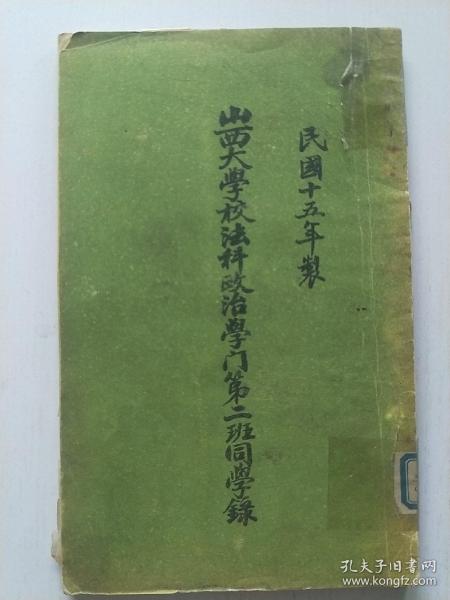 民國十五年製
山西大學校法科政治學门第二班同學錄
孔夫子旧书网
www.kongfz.com